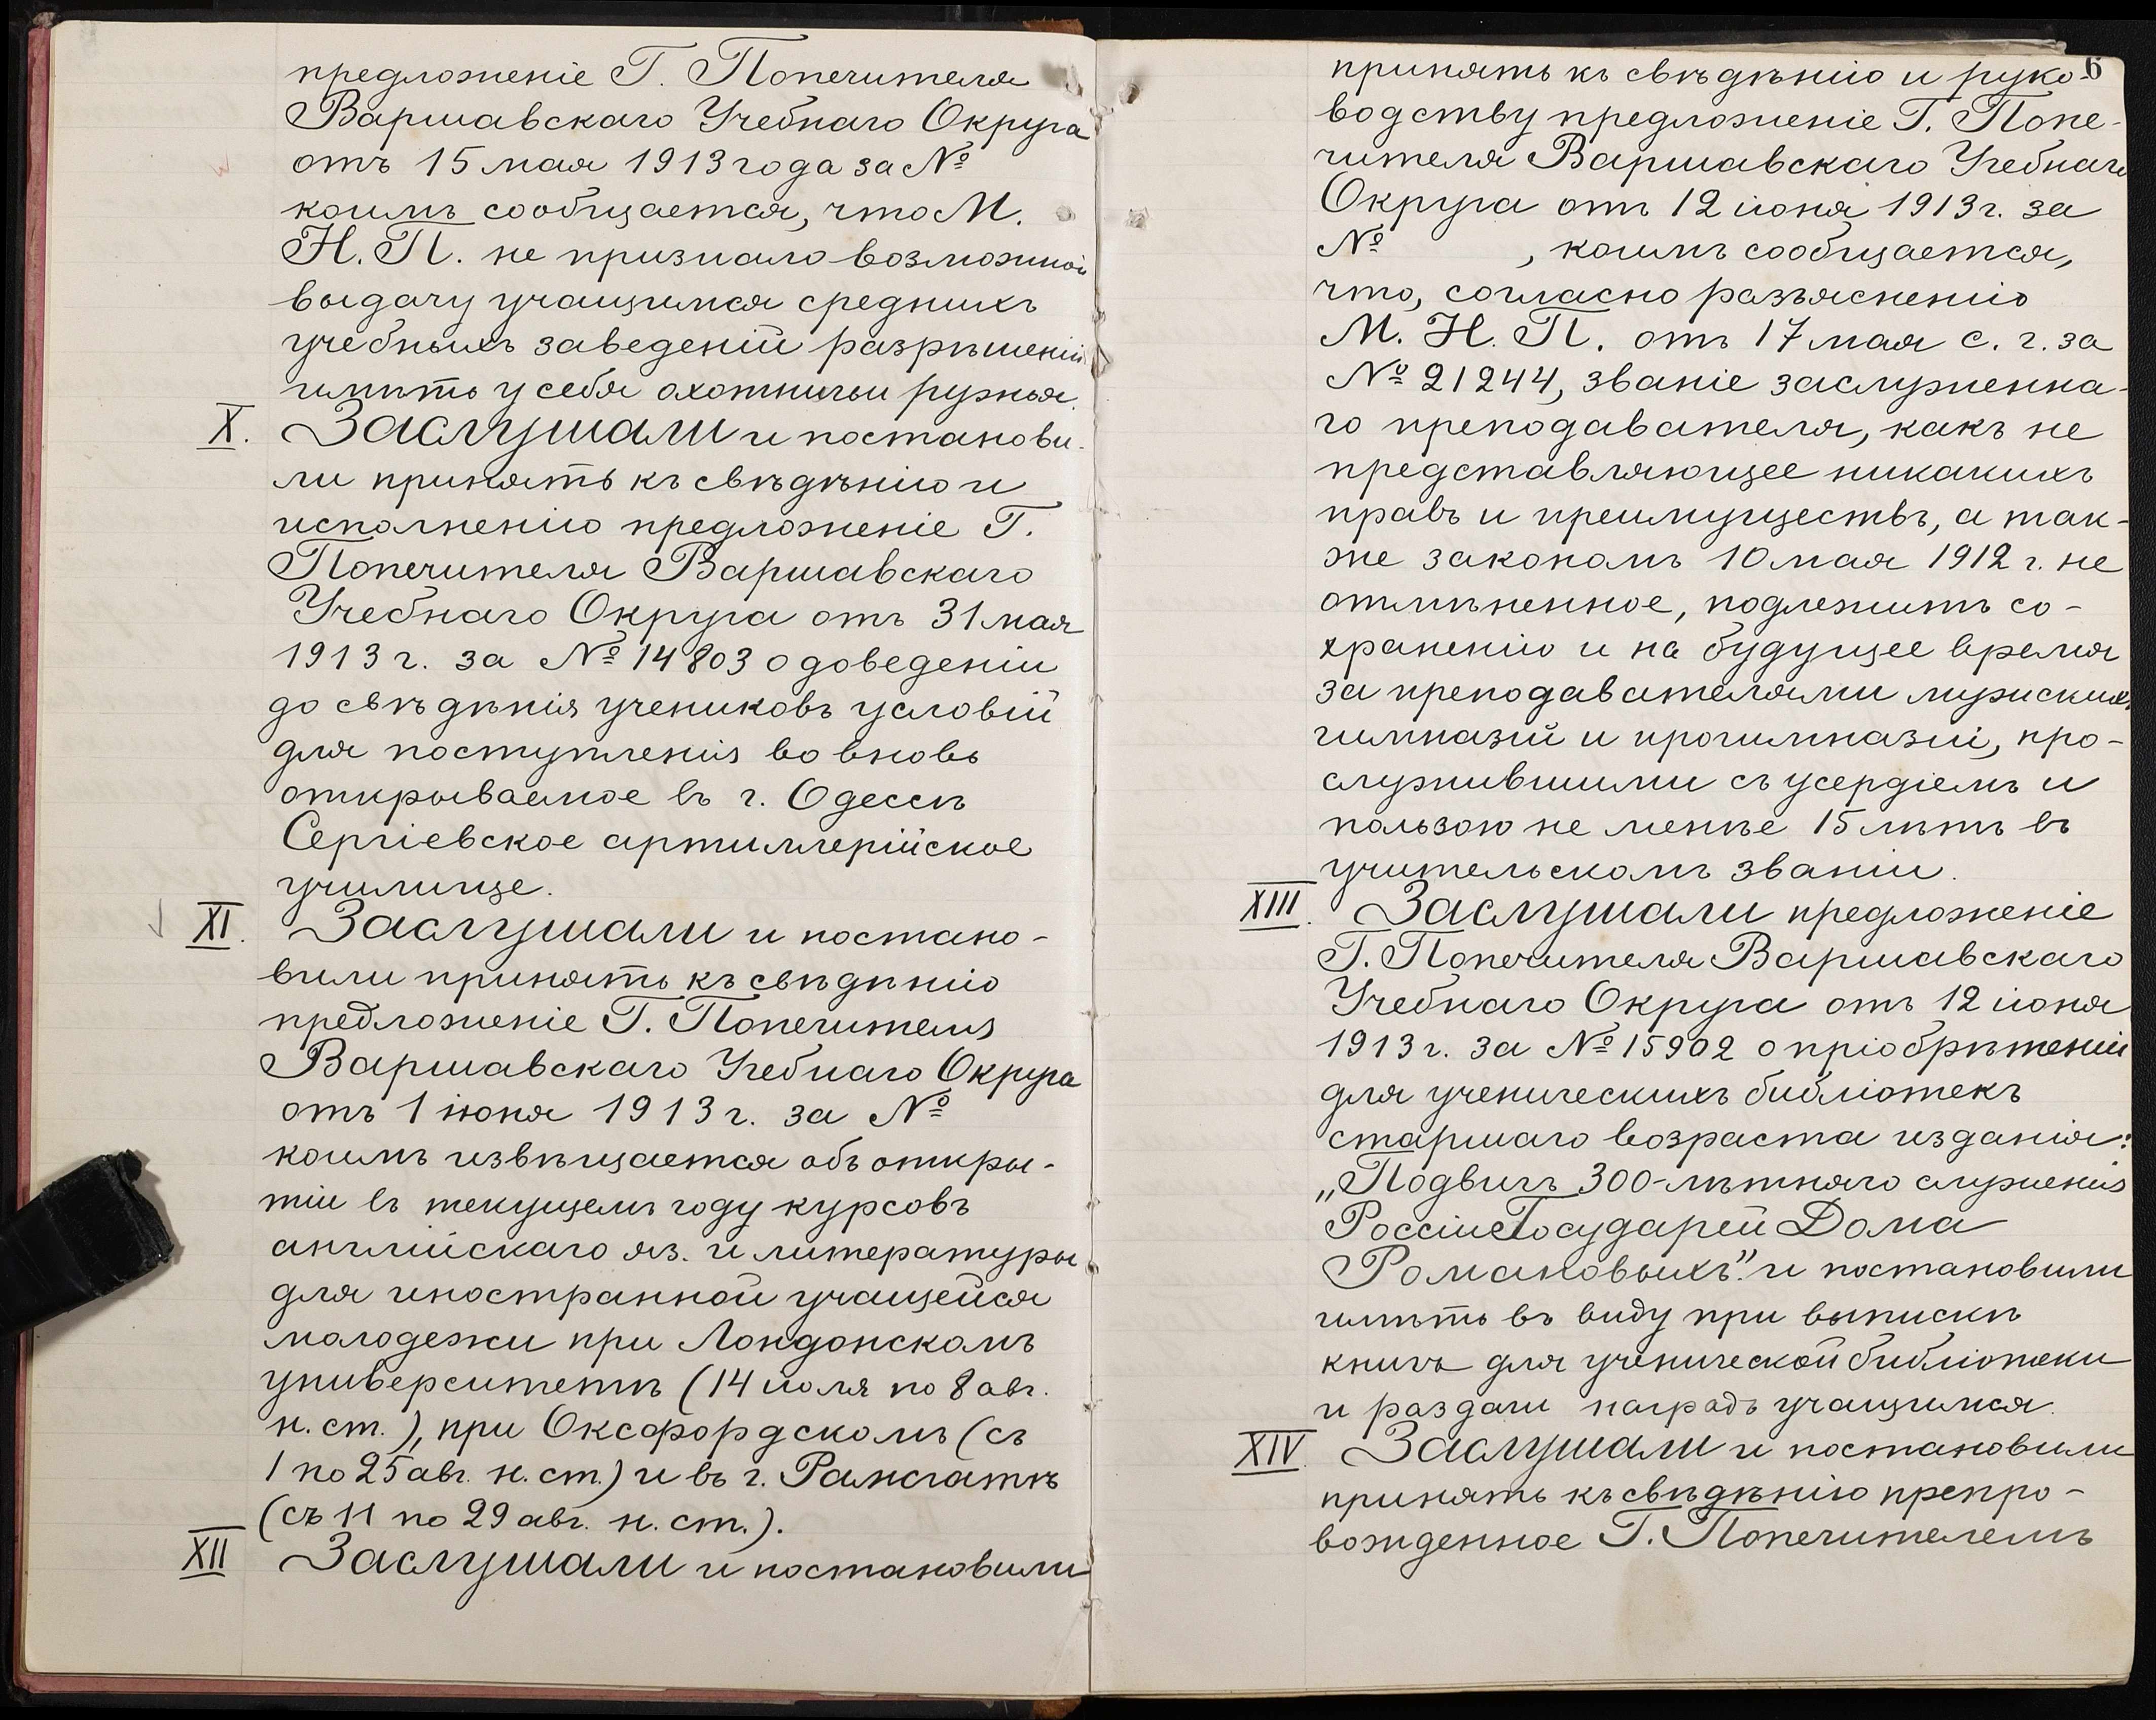 предложеніе Г. Попечителя
Варшавскаго Учебнаго Округа
отъ 15 мая 1913 года за №
коимъ сообщается, что М.
Н. П. не признало возможной
выдачу учащимся среднихъ
учебныхъ заведеній разрѣшеній
имѣть у себя охотничьи ружья.
X. Заслушали и постанови-
ли принять къ свѣдѣнію и
исполненію предложеніе Г.
Попечителя Варшавскаго
Учебнаго Округа отъ 31 мая
1913 г. за № 14803 о доведеніи
до свѣдѣнія учениковъ условій
для поступленія во вновь
открываемое въ г. Одессѣ
Сергіевское артиллерійское
училище.
XI. Заслушали и постано-
вили принять къ свѣдѣнію
предложеніе Г. Попечителя
Варшавскаго Учебнаго Округа
отъ 1 іюня 1913 г. за №
коимъ извѣщается объ откры-
тіи въ текущемъ году курсовъ
англійскаго яз. и литературы
для иностранной учащейся
молодежи при Лондонскомъ
университетѣ (14 іюля по 8 авг.
н. ст.), при Оксфордскомъ (съ
1 по 25 авг. н. ст.) и въ г. Рамсгатѣ
(съ 11 по 29 авг. н. ст.).
XII Заслушали и постановили
6
принять къ свѣдѣнію и руко-
водству предложеніе Г. Попе-
чителя Варшавскаго Учебнаго
Округа отъ 12 іюня 1913 г. за
№ , коимъ сообщается,
что, согласно разъясненію
М. Н. П. отъ 17 мая с. г. за
№ 21244, званіе заслуженна-
го преподавателя, какъ не
представляющее никакихъ
правъ и преимуществъ, а так-
же закономъ 10 мая 1912 г. не
отмѣненное, подлежитъ со-
храненію и на будущее время
за преподавателями мужскихъ
гимназій и прогимназій, про-
служившими съ усердіемъ и
пользою не менѣе 15 лѣтъ въ
учительскомъ званіи.
XIII. Заслушали предложеніе
Г. Попечителя Варшавскаго
Учебнаго Округа отъ 12 іюня
1913 г. за № 15902 о пріобрѣтеніи
для ученическихъ библіотекъ
старшаго возраста изданія:
„Подвигъ 300-лѣтняго служенія
Россіи Государей Дома
Романовыхъ". и постановили
имѣть въ виду при выпискѣ
книгъ для ученической библіотеки
и раздачи наградъ учащимся.
XIV. Заслушали и постановили
принять къ свѣдѣнію препро-
вожденное Г. Попечителемъ